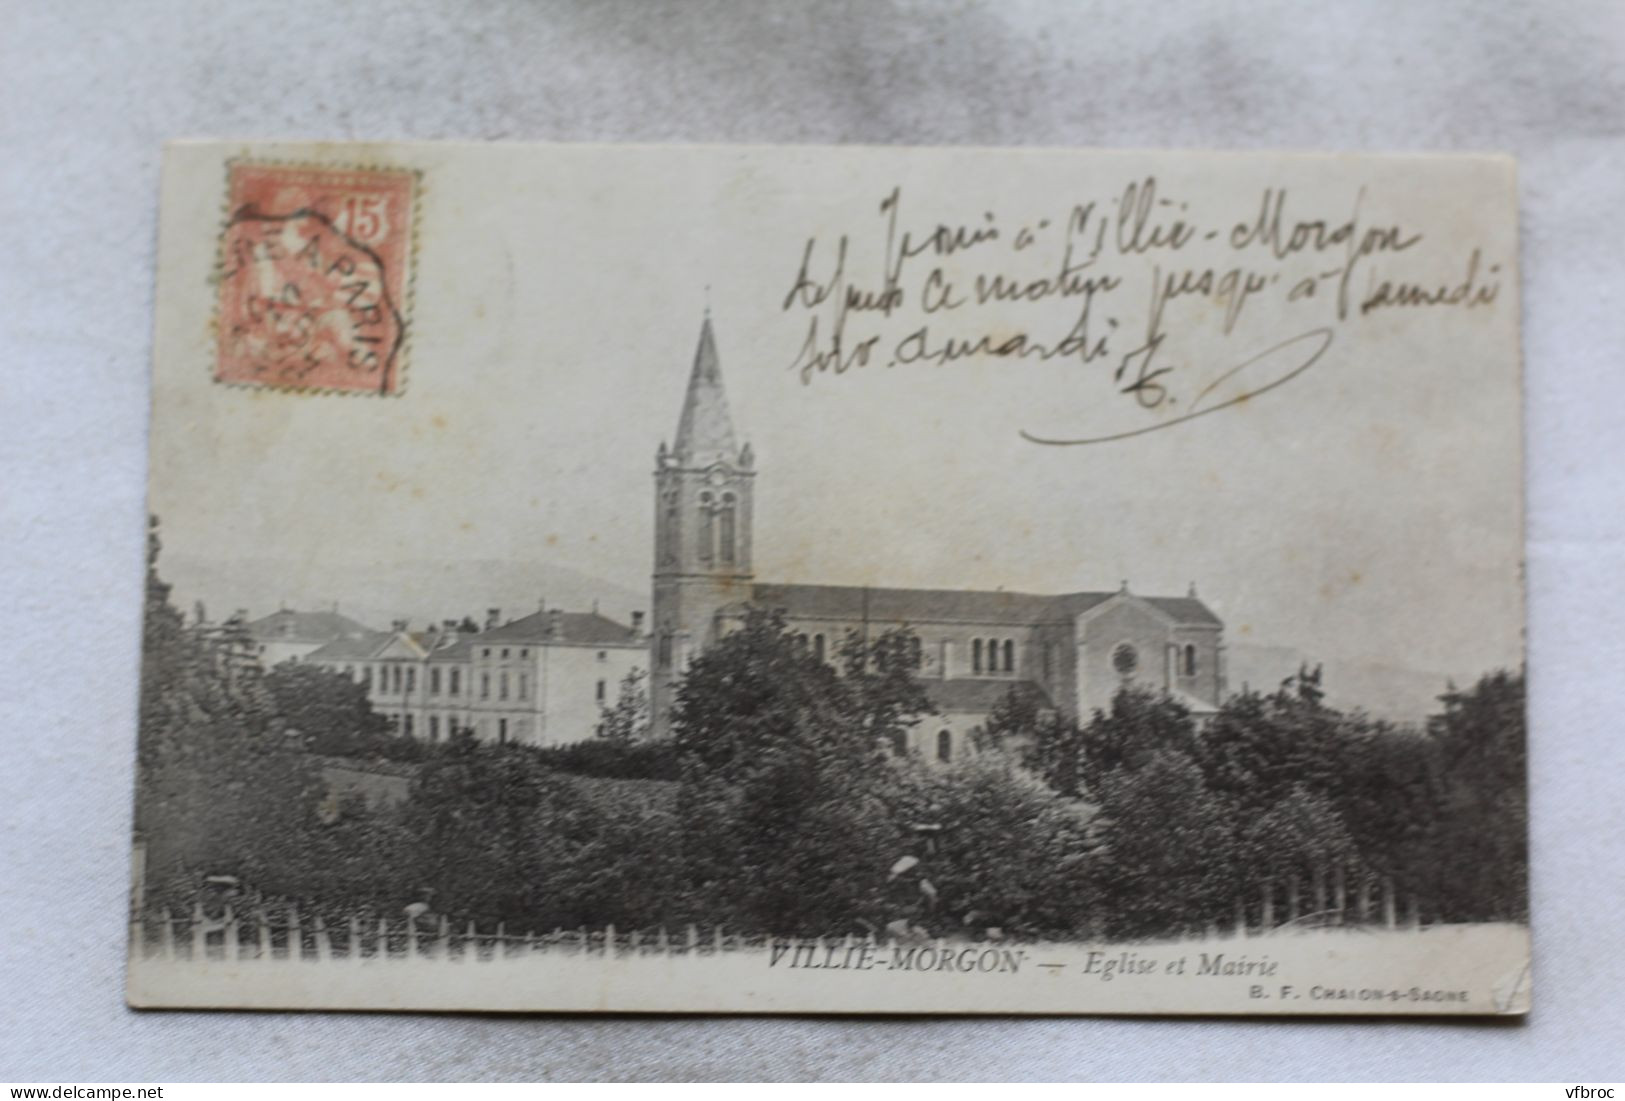 15
RE A PARIS
suis à Villié-Morgon
depuis ce matin jusqu'à samedi
soir. Amardi
VILLIE-MORGON — Eglise et Mairie
B. F. CHALON-S-SAONE
vfbroc